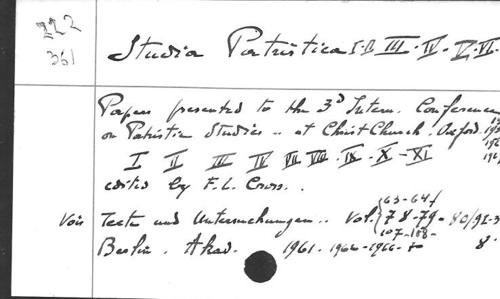 222
361
Studia Patristica I-II III. IV. V. VI.
Papers presented to the 3d Intern. Conference
on Patristic Studies .. at Christ Church. Oxford.
I II III IV VII VIII. IX. X - XI
edited by F. L. Cross.
63-64/
Voir Texte und Untersuchungen .. Vol. 78-79- 80/81-
107-108-
Berlin. Akad. 1961. 1964-1966-70 8°